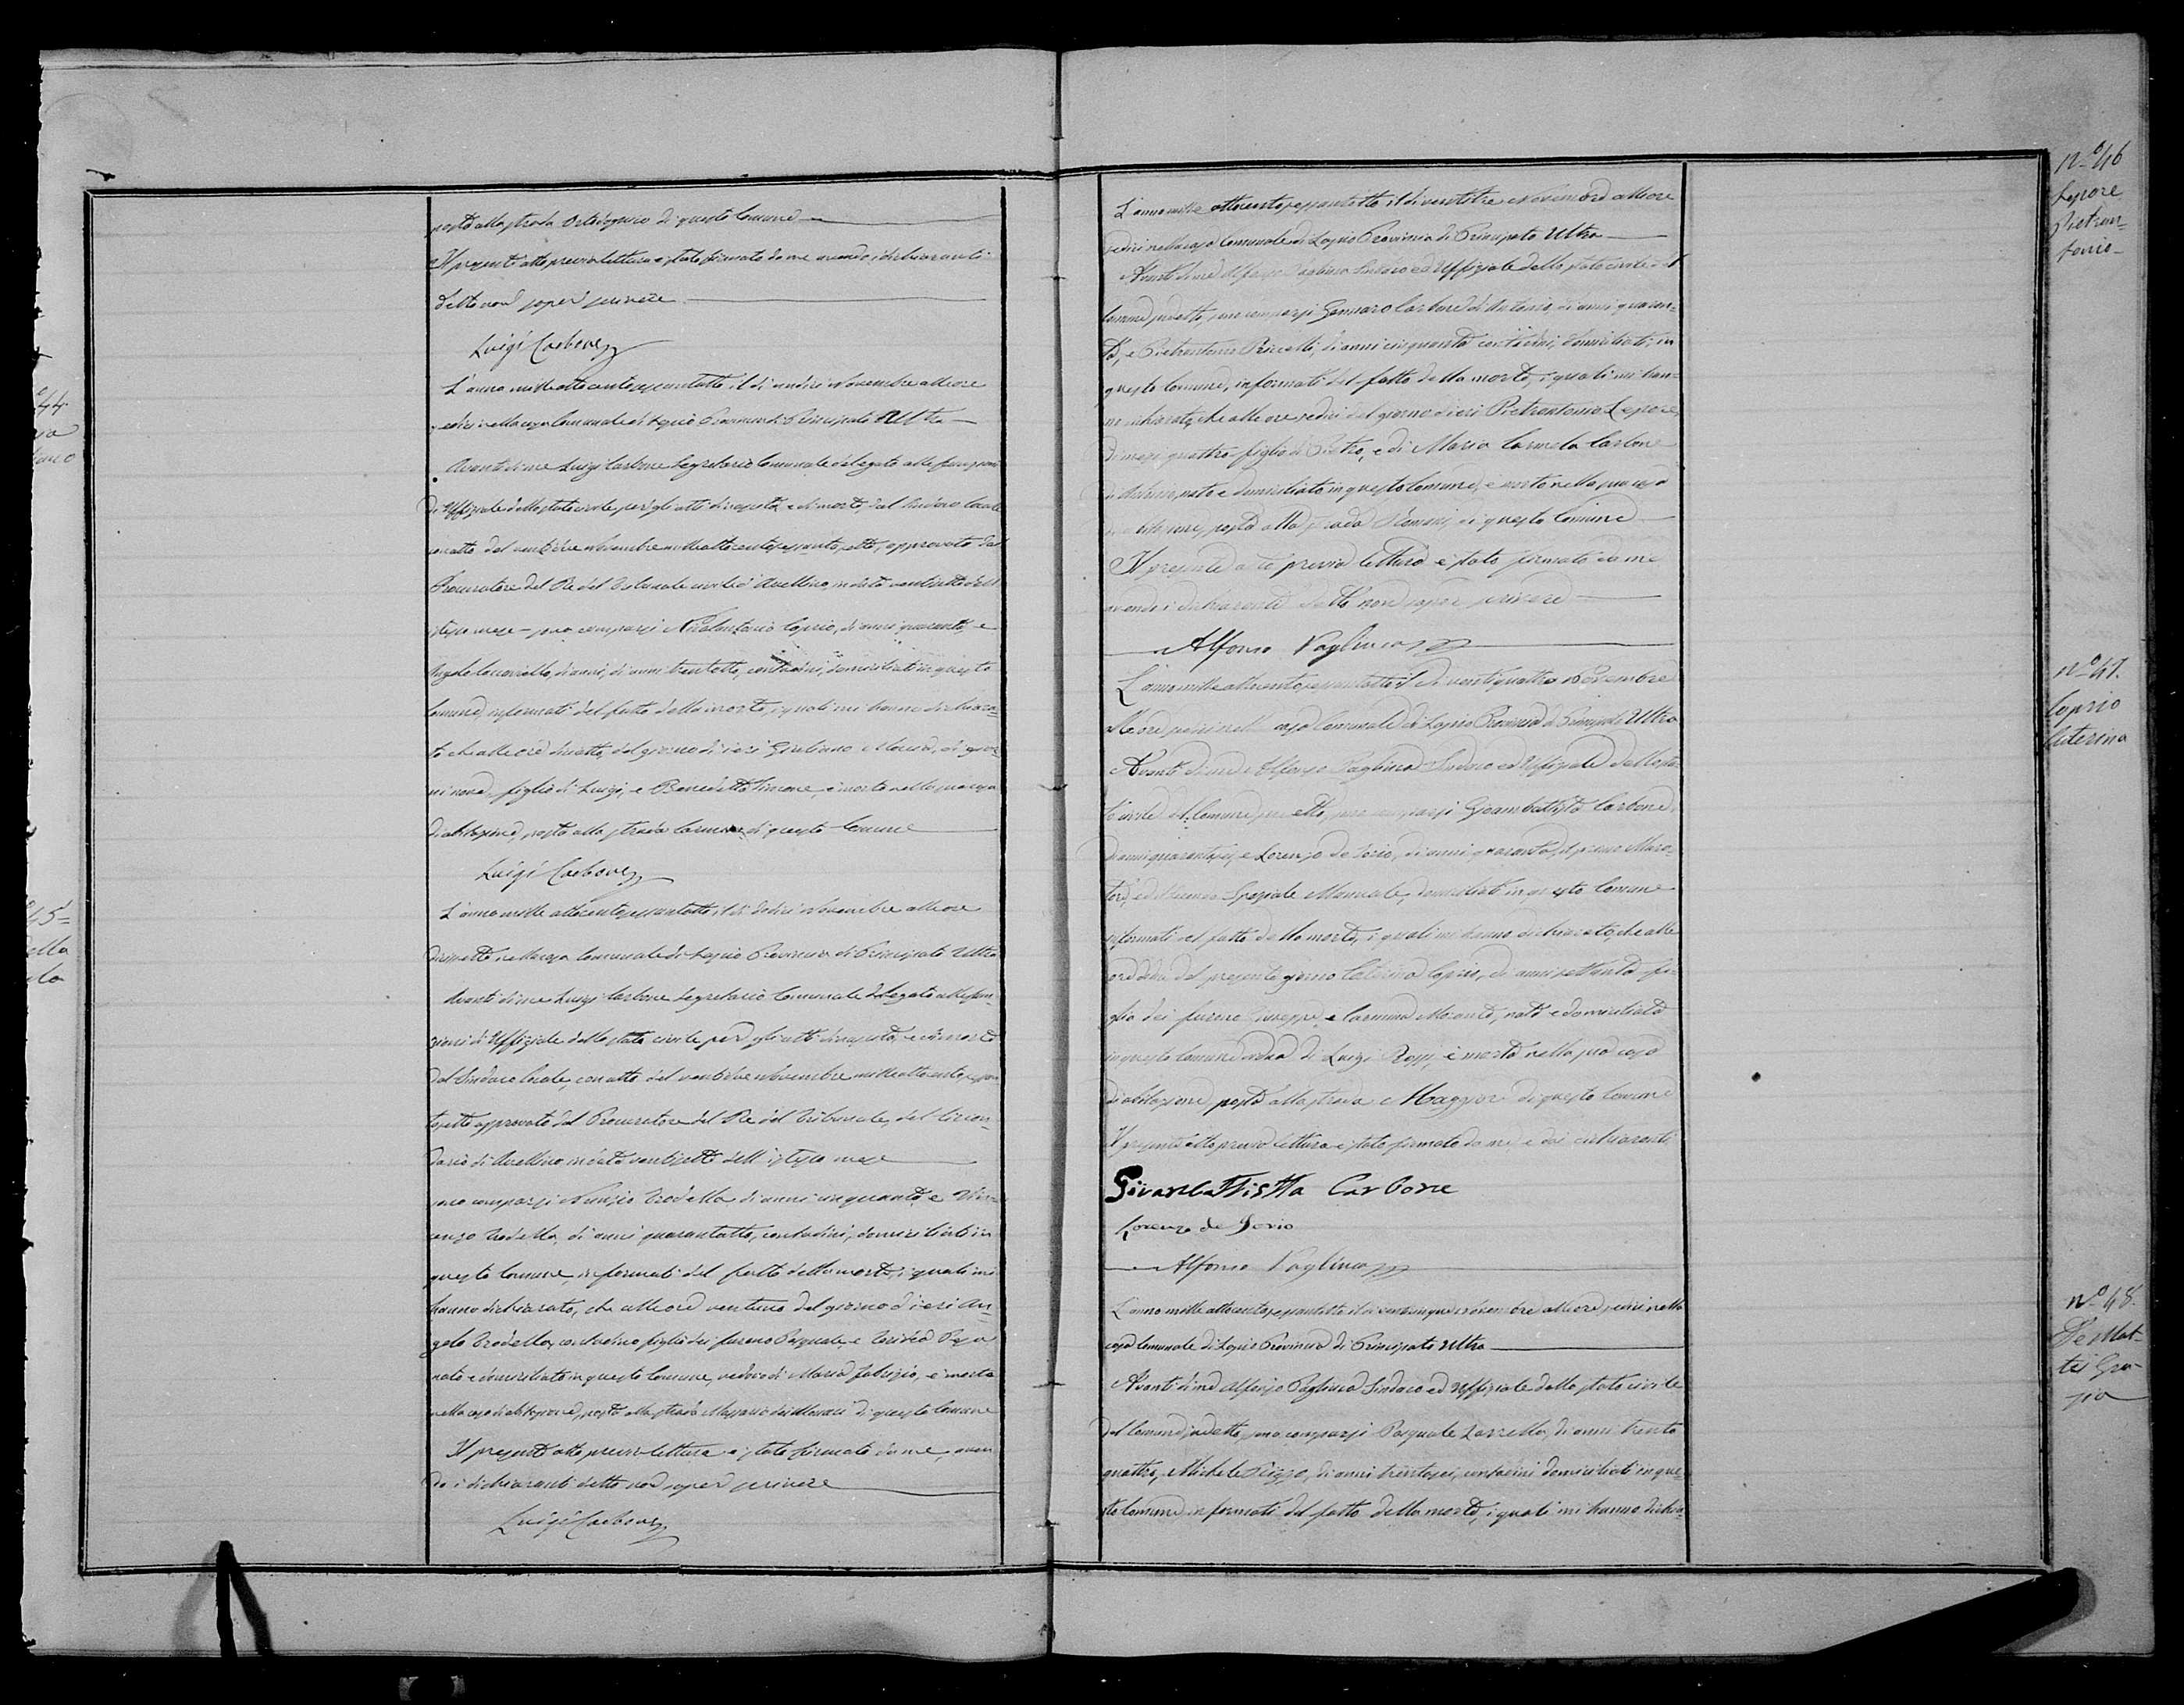 posta alla strada di questo Comune
Il presente atto previa lettura è stato firmato da me avendo i dichiaranti
detto non saper scrivere
Luigi Carbone
44
L'anno mille ottocento sessantotto il dì undici Novembre alle ore
sedici nella casa Comunale di Lapio Provincia di Principato Ultra
Avanti di me Luigi Carbone Segretario Comunale delegato alle funzioni
di Uffiziale dello stato civile per gli atti di nascita, e di morte, dal Sindaco locale
con atto del Novembre mille ottocento sessanta sette, approvato dal
Procuratore del Re del Tribunale civile di Avellino, in data dell'
stesso mese sono comparsi Caprio, di anni quaranta, e
Angelo di anni, di anni trentotto, contadini, domiciliati in questo
Comune, informati del fatto della morte, i quali mi hanno dichiara-
to che alle ore del giorno di ieri Giuliano di gior-
ni nove, figlio di Luigi, e Benedetta è morto nella sua casa
di abitazione, posta alla strada di questo Comune
Luigi Carbone
45
ella
L'anno mille ottocento sessantotto il dì dodici Novembre alle ore
diciassette nella casa Comunale di Lapio Provincia di Principato Ultra
Avanti di me Luigi Carbone Segretario Comunale delegato alle fun-
zioni di Uffiziale dello stato civile per gli atti di nascita, e di morte
dal Sindaco locale, con atto del Novembre mille ottocento sessan
tasette approvato dal Procuratore del Re del Tribunale, del Circon-
dario di Avellino in data ventisette dell'istesso mese
sono comparsi Nunzio Trodella di anni cinquanta, e Vin
cenzo Trodella, di anni quarantotto, contadini, domiciliati in
questo Comune, informati del fatto della morte, i quali mi
hanno dichiarato, che alle ore ventuno del giorno di ieri An-
gelo Trodella, contadino figlio dei furono Pasquale, e
nato e domiciliato in questo Comune, vedovo di Maria Fabrizio, è morto
nella casa di abitazione, posta alla strada di questo Comune
Il presente atto previa lettura è stato firmato da me, aven
do i dichiaranti detto non saper scrivere
Luigi Carbone
N.º 46
Lepore
Pietran-
tonio
L'anno mille ottocento sessantotto il dì ventitre Novembre alle ore
sedici nella casa Comunale di Lapio Provincia di Principato Ultra
Avanti di me Alfonso Pagliuca Sindaco ed Uffiziale dello stato civile del
Comune suddetto, sono comparsi Gennaro Carbone di Antonio, di anni quaran-
ta, e Pietrantonio di anni cinquanta contadini, domiciliati in
questo Comune, informati del fatto della morte, i quali mi han-
no dichiarato, che alle ore sedici del giorno di ieri Pietrantonio Lepore,
di mesi quattro figlio di Pietro, e di Maria Carmela Carbone
nato e domiciliato in questo Comune, è morto nella sua casa
di abitazione, posta alla strada di questo Comune
Il presente atto previa lettura è stato firmato da me
avendo i dichiaranti detto non saper scrivere
Alfonso Pagliuca
N.º 47.
Caprio
Caterina
L'anno mille ottocento sessantotto il dì ventiquattro Novembre
alle ore sedici nella casa Comunale di Lapio Provincia di Principato Ultra
Avanti di me Alfonso Pagliuca Sindaco ed Uffiziale dello sta-
to civile del Comune suddetto, sono comparsi Giambattista Carbone,
di anni quarantasei, e Lorenzo de Iorio, di anni quaranta, il primo
ed il secondo Speziale Manuale, domiciliati in questo Comune
informati del fatto della morte, i quali mi hanno dichiarato, che alle
ore del presente giorno Caterina Caprio, di anni settanta fi-
glia dei furono Giuseppe e Carmina nata e domiciliata
in questo Comune vedova di Luigi è morta nella sua casa
di abitazione posta alla strada Maggiore di questo Comune
Il presente atto previa lettura è stato firmato da me e dai dichiaranti
Givanbattistta Carbone
Lorenzo de Iorio
Alfonso Pagliuca
N.º 48.
De Mat-
teis Gra-
zia
L'anno mille ottocento sessantotto il dì venticinque Novembre alle ore sedici nella
casa Comunale di Lapio Provincia di Principato Ultra
Avanti di me Alfonso Pagliuca Sindaco ed Uffiziale dello stato civile
del Comune suddetto, sono comparsi Pasquale di anni trenta
quattro, Michele di anni trentasei, contadini domiciliati in que-
sto Comune informati del fatto della morte, i quali mi hanno dichia-